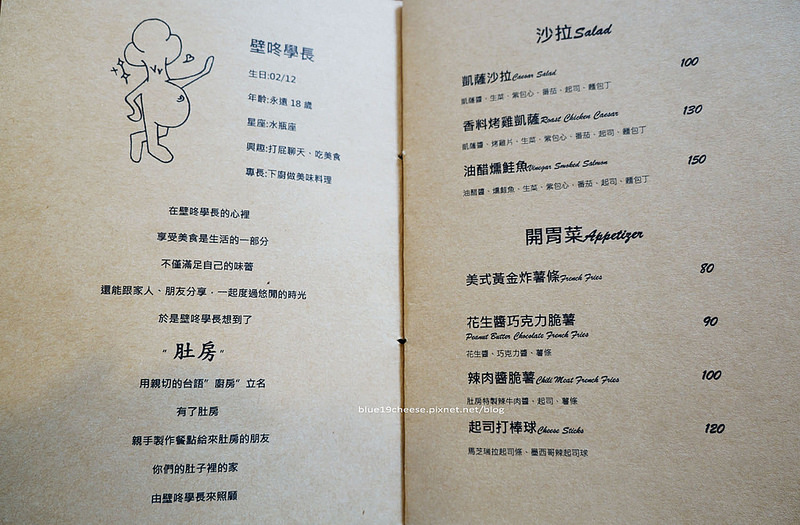 壁咚學長
生日:02/12
年齡:永遠 18 歲
星座:水瓶座
興趣:打屁聊天、吃美食
專長:下廚做美味料理
在壁咚學長的心裡
享受美食是生活的一部分
不僅滿足自己的味蕾
還能跟家人、朋友分享，一起度過悠閒的時光
於是壁咚學長想到了
"肚房"
用親切的台語"廚房"立名
有了肚房
親手製作餐點給來肚房的朋友
你們的肚子裡的家
由壁咚學長來照顧
沙拉Salad
凱薩沙拉Caesar Salad 100
凱薩醬、生菜、紫包心、番茄、起司、麵包丁
香料烤雞凱薩Roast Chicken Caesar 130
凱薩醬、烤雞片、生菜、紫包心、番茄、起司、麵包丁
油醋燻鮭魚Vinegar Smoked Salmon 150
油醋醬、燻鮭魚、生菜、紫包心、番茄、起司、麵包丁
開胃菜Appetizer
美式黃金炸薯條French Fries 80
花生醬巧克力脆薯 90
Peanut Butter Chocolate French Fries
花生醬、巧克力醬、薯條
辣肉醬脆薯Chili Meat French Fries 100
肚房特製辣牛肉醬、起司、薯條
起司打棒球Cheese Sticks 120
馬芝瑞拉起司條、墨西哥辣起司球
blue19cheese.pixnet.net/blog